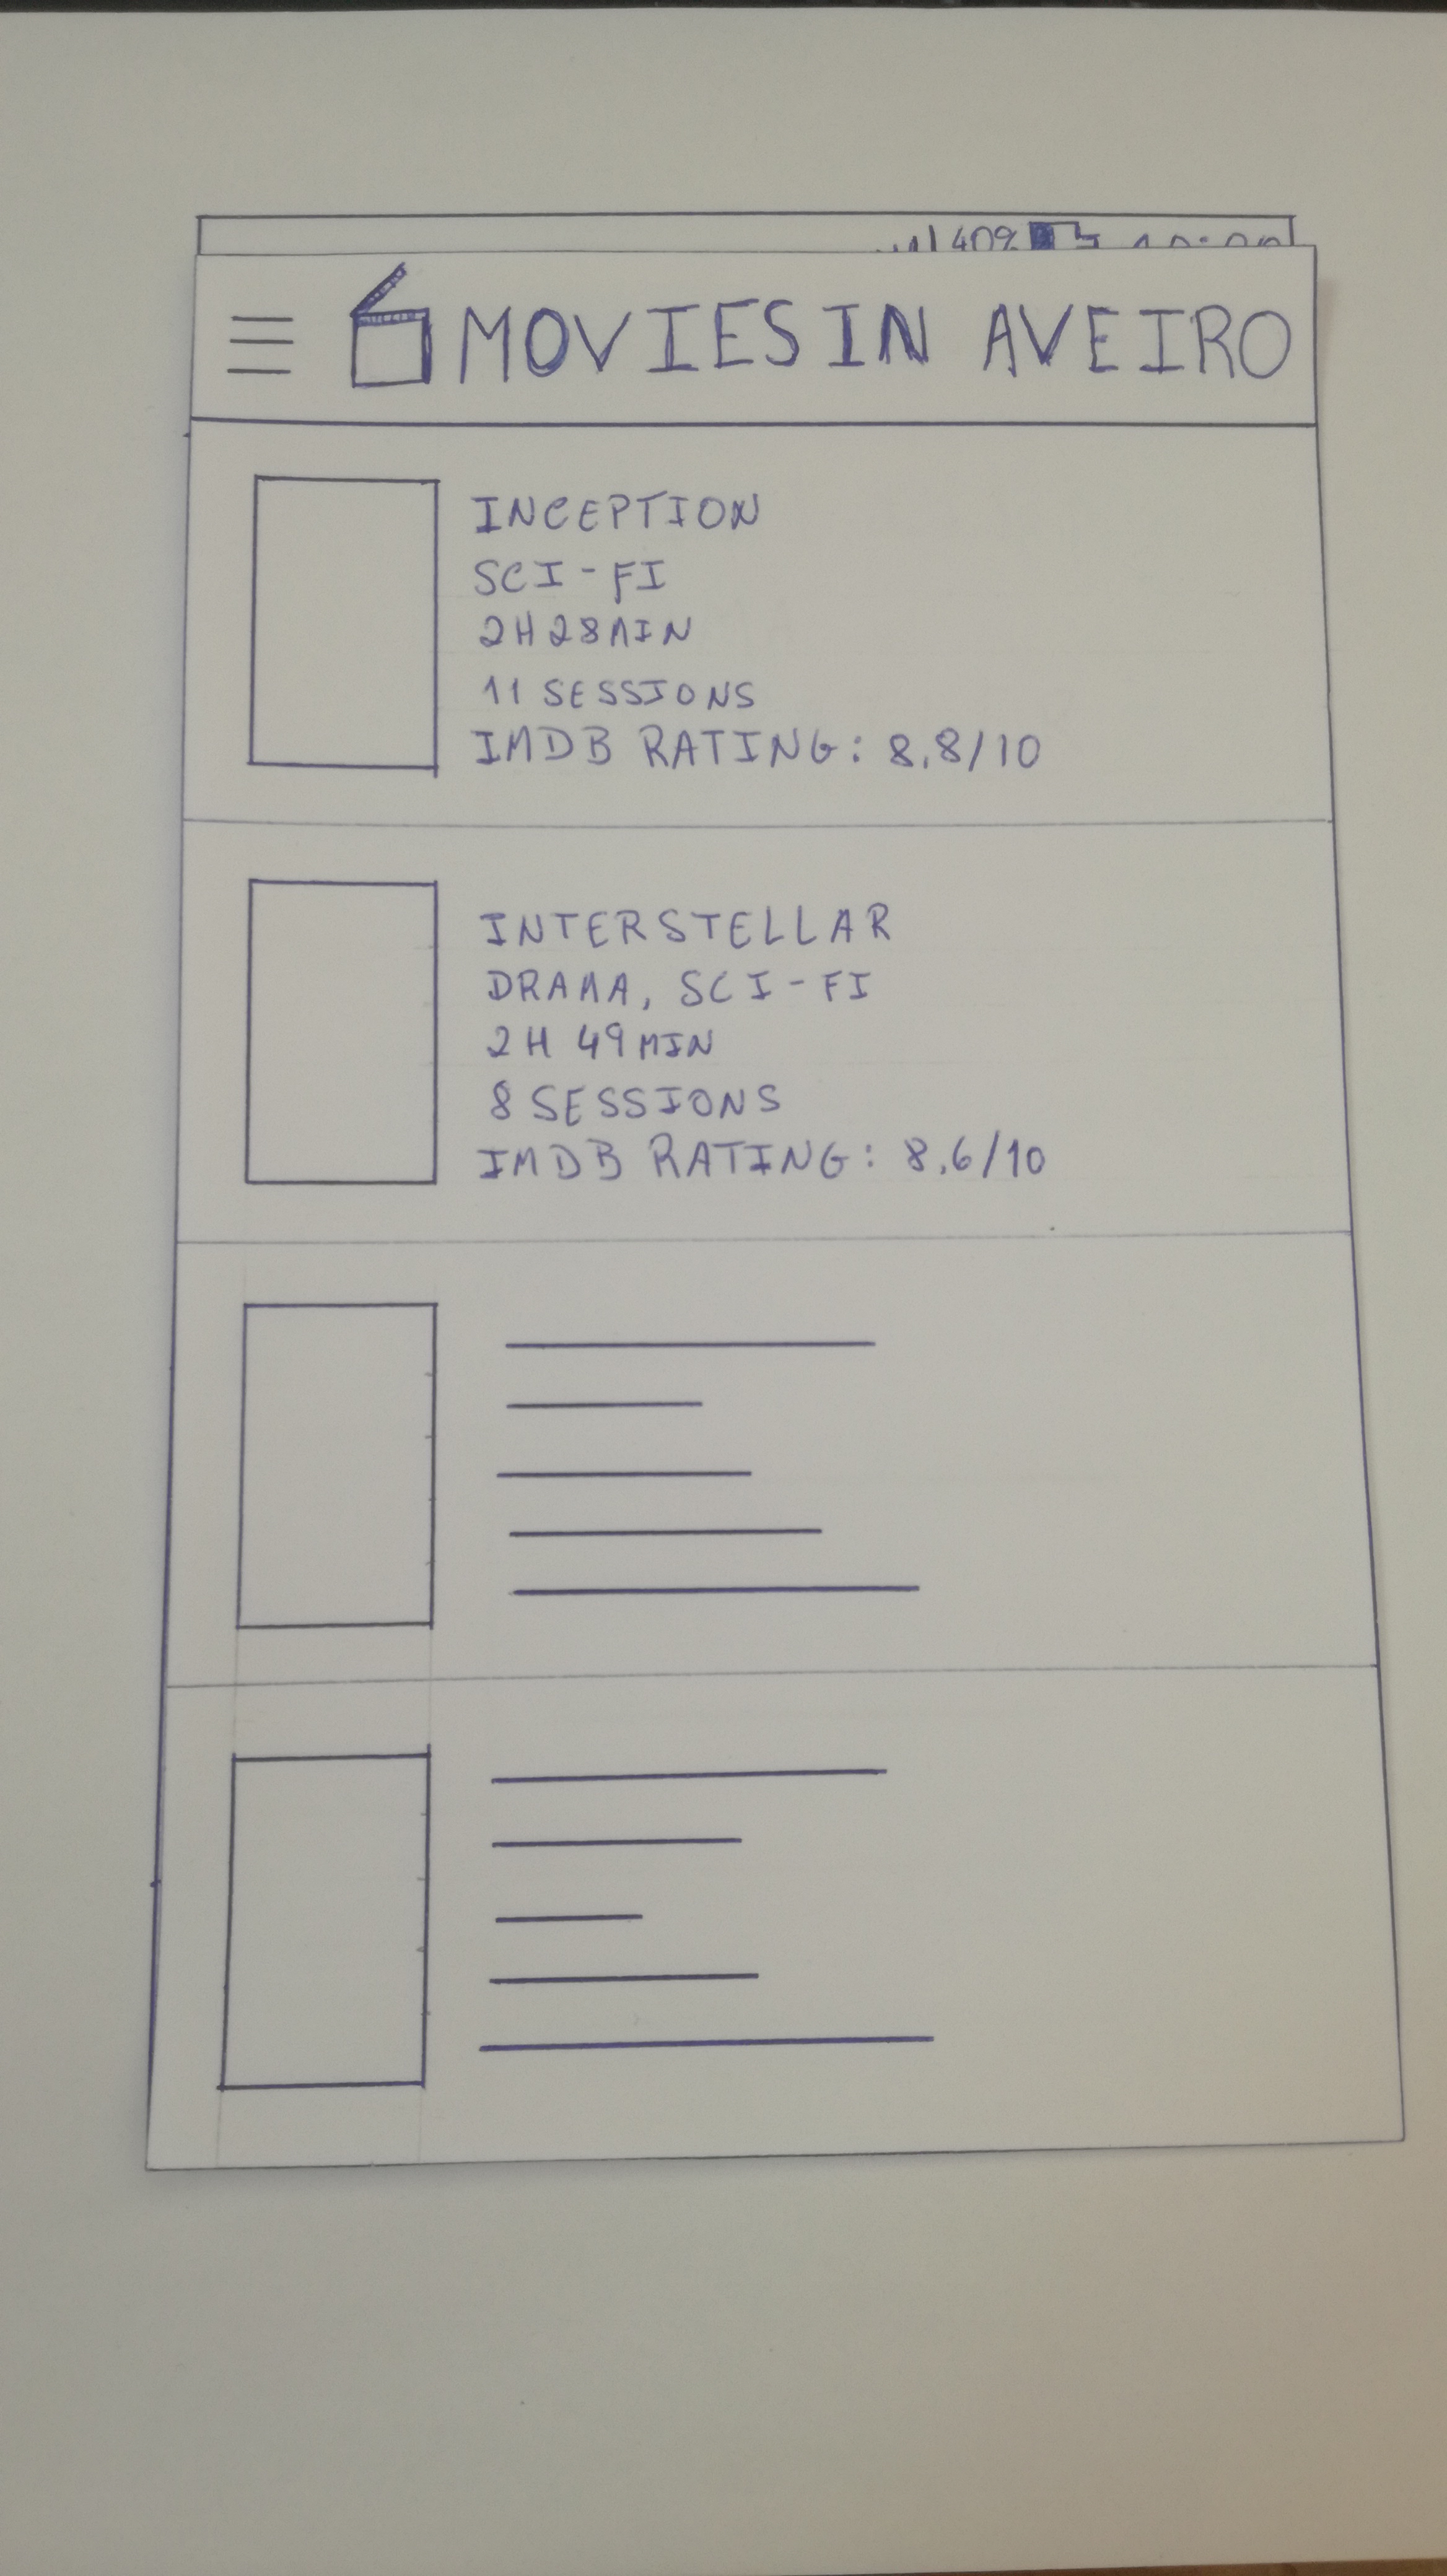 40%
MOVIES IN AVEIRO
INCEPTION
SCI-FI
2H28MIN
11 SESSIONS
IMDB RATING: 8.8/10
INTERSTELLAR
DRAMA, SCI-FI
2H 49MIN
8 SESSIONS
IMDB RATING: 8.6/10